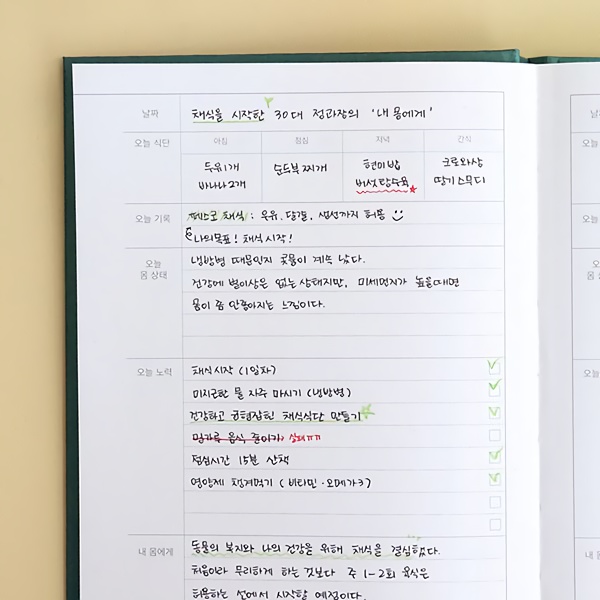 날짜 채식을 시작한 30대 정과장의 '내 몸에게' 날
오늘 식단 아침 점심 저녁 간식 오늘
두유1개 순두부찌개 현미밥 크로와상
바나나2개 버섯탕수육 딸기스무디
오늘 기록 페스코 채식 : 우유, 달걀, 생선까지 허용 오늘
나의목표! 채식 시작!
오늘 몸 상태 냉방병 때문인지 콧물이 계속 났다. 오
건강에 별이상은 없는 상태지만, 미세먼지가 높을때면 몸
몸이 좀 안좋아지는 느낌이다.
오늘 노력 채식시작 (1일차) 오늘
미지근한 물 자주 마시기 (냉방병)
건강하고 균형잡힌 채식식단 만들기
밀가루 음식 줄이기 실패ㅠㅠ
점심시간 15분 산책
영양제 챙겨먹기 (비타민·오메가3)
내 몸에게 동물의 복지와 나의 건강을 위해 채식을 결심했다. 내 몸
처음이라 무리하게 하는 것보다 주 1-2회 육식은
허용하는 선에서 시작할 예정이다.